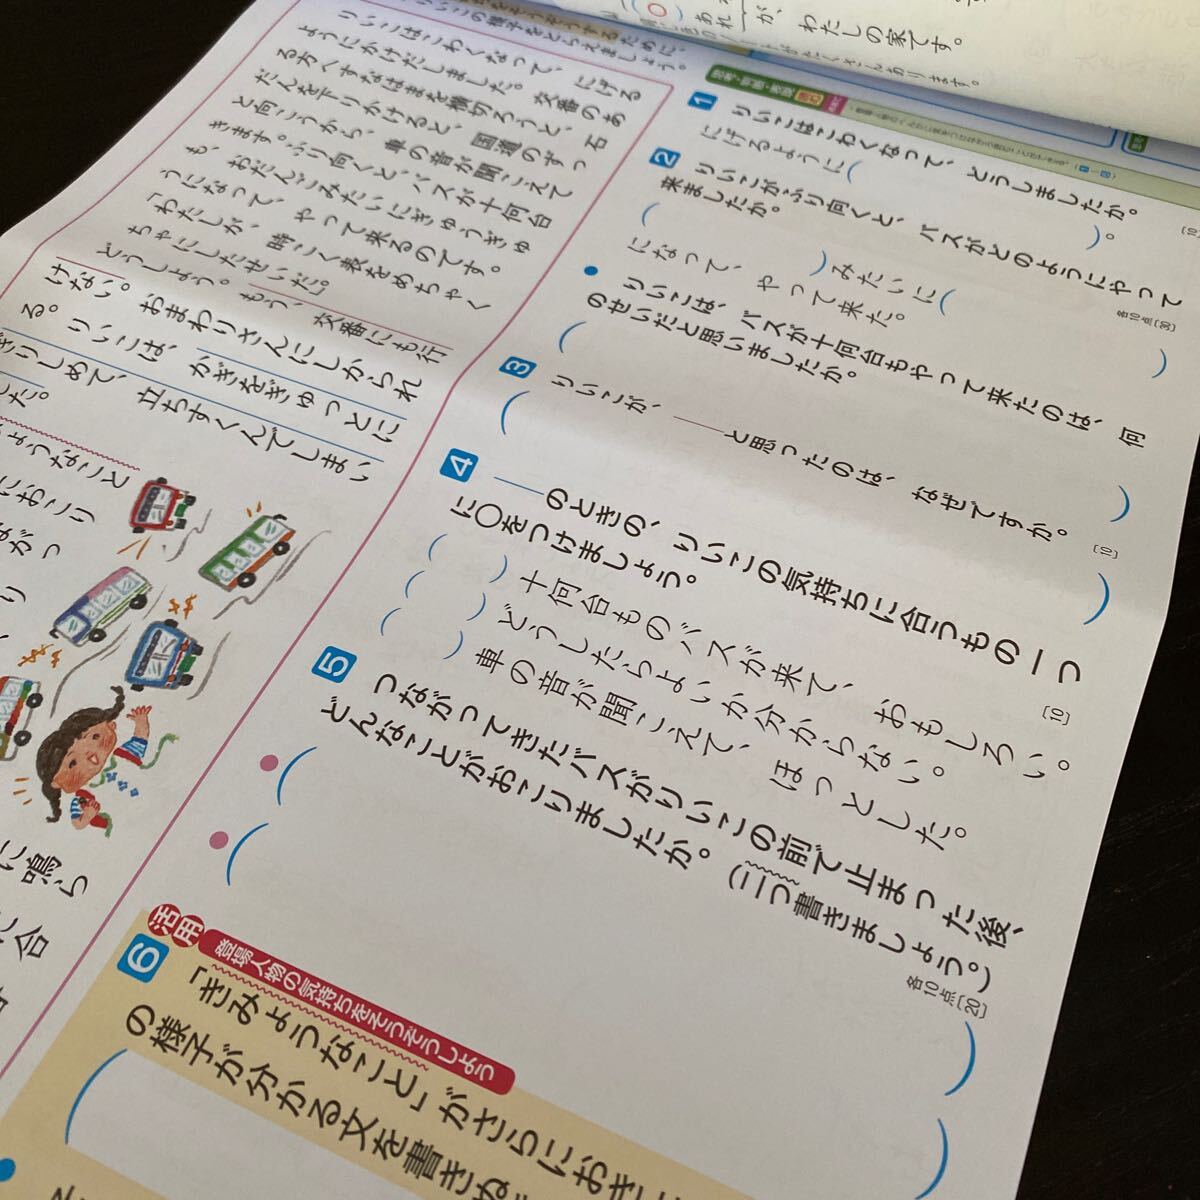 あれ
が、わたしの家です。
りいこの様子をとらえましょう。
りいこはこわくなって、にげる
ようにかけだしました。交番のあ
る方へすなはまを横切ろうと、石
だんを下りかけると、国道のずっ
と向こうから、車の音が聞こえて
きます。ふり向くと、バスが十何台
も、おだんごみたいにぎゅうぎゅ
うになって、やって来るのです。
「わたしが、時こく表をめちゃく
ちゃにしたせいだ。
どうしよう。もう、交番にも行
けない。おまわりさんにしかられ
る。りいこは、かぎをぎゅっとに
ぎりしめて、立ちすくんでしまい
した。
ようなこと
におこり
がっ
り
に鳴ら
に合
思考・判断・表現
1 りいこはこわくなって、どうしましたか。
〔10〕
にげるように（　）。
2 りいこがふり向くと、バスがどのようにやって
来ましたか。
各10点〔30〕
（　）みたいに（　）
になって、やって来た。
りいこは、バスが十何台もやって来たのは、何
のせいだと思いましたか。
（　）
3 りいこが、――と思ったのは、なぜですか。
〔10〕
（　）
4 ――のときの、りいこの気持ちに合うもの一つ
に○をつけましょう。
〔10〕
（　）十何台ものバスが来て、おもしろい。
（　）どうしたらよいか分からない。
（　）車の音が聞こえて、ほっとした。
5 つながってきたバスがりいこの前で止まった後、
どんなことがおこりましたか。（二つ書きましょう。）
各10点〔20〕
（　）
（　）
活用 登場人物の気持ちをそうぞうしよう
6 「きみょうなこと」がさらにおき
の様子が分かる文を書きぬ
（